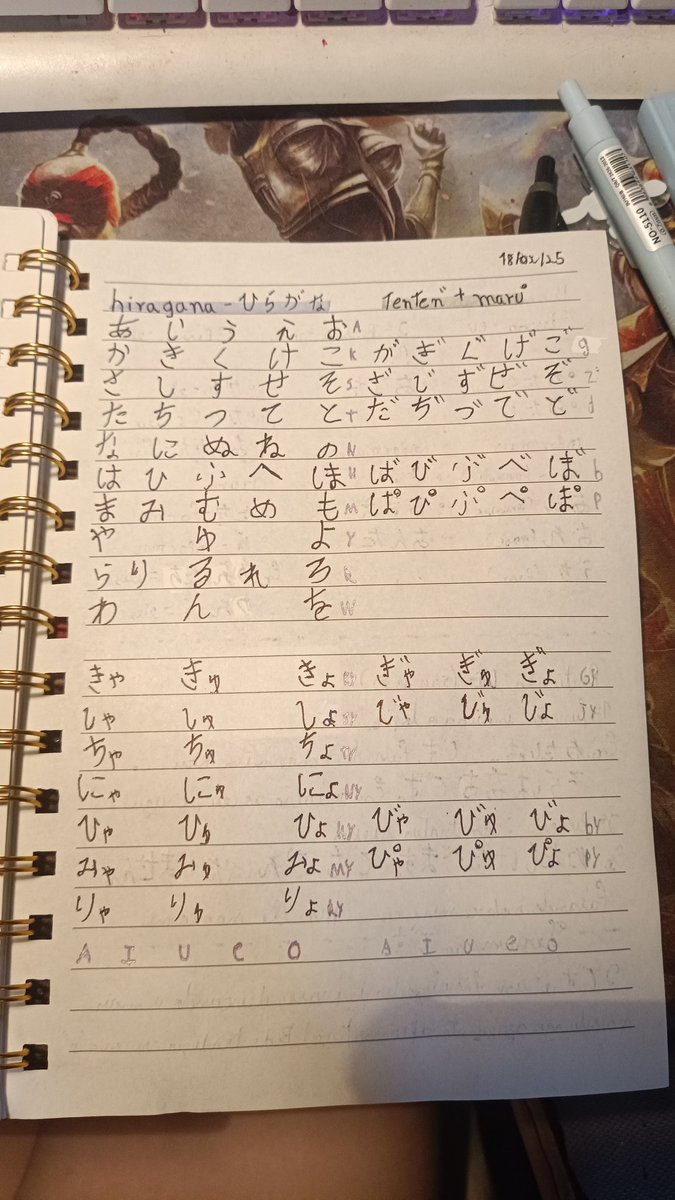 NO-5110
18/02/25
hiragana - ひらがな tenten + maru
あ い う え お A
か き く け こ K が ぎ ぐ げ ご g
さ し す せ そ S ざ じ ず ぜ ぞ z
た ち つ て と T だ ぢ づ で ど d
な に ぬ ね の N
は ひ ふ へ ほ H ば び ぶ べ ぼ b
ま み む め も M ぱ ぴ ぷ ぺ ぽ p
や ゆ よ Y
ら り る れ ろ R
わ ん を W
きゃ きゅ きょ KY ぎゃ ぎゅ ぎょ gy
しゃ しゅ しょ SY じゃ じゅ じょ
ちゃ ちゅ ちょ TY
にゃ にゅ にょ NY
ひゃ ひゅ ひょ HY びゃ びゅ びょ by
みゃ みゅ みょ MY ぴゃ ぴゅ ぴょ py
りゃ りゅ りょ RY
A I U E O A I U E O